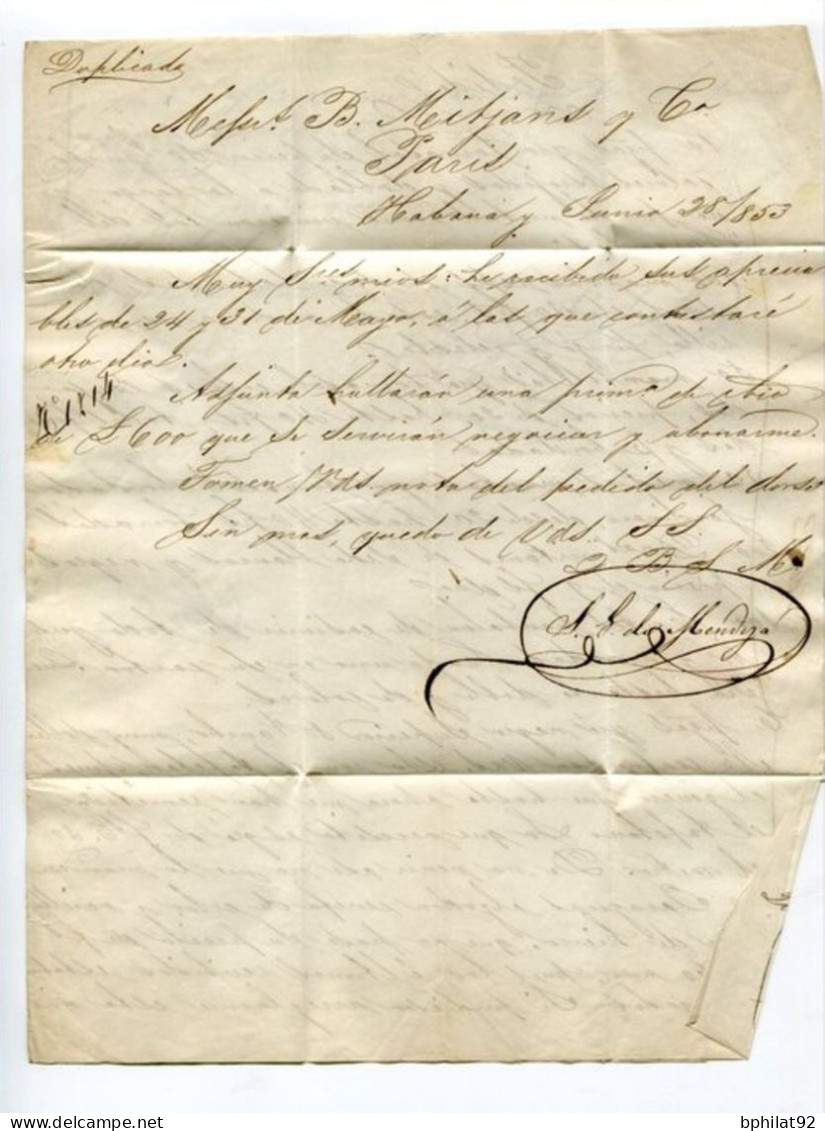 Duplicado
Messrs. B. Mitjans y Co.
Paris
Habana y Junio 28/853
Muy Sres mios: he recibido sus aprecia
bles de 24 y 31 de Mayo, á las que contestaré
otro dia.
No 1814
Adjunta hallarán una prima. de cbio
de £600 que se servirán negociar y abonarme.
Tomen Vds. nota del pedido del dorso
Sin mas, quedo de Vds. S S.
Q B. S M.
de Mendi
Delcampe.net
bphilat92